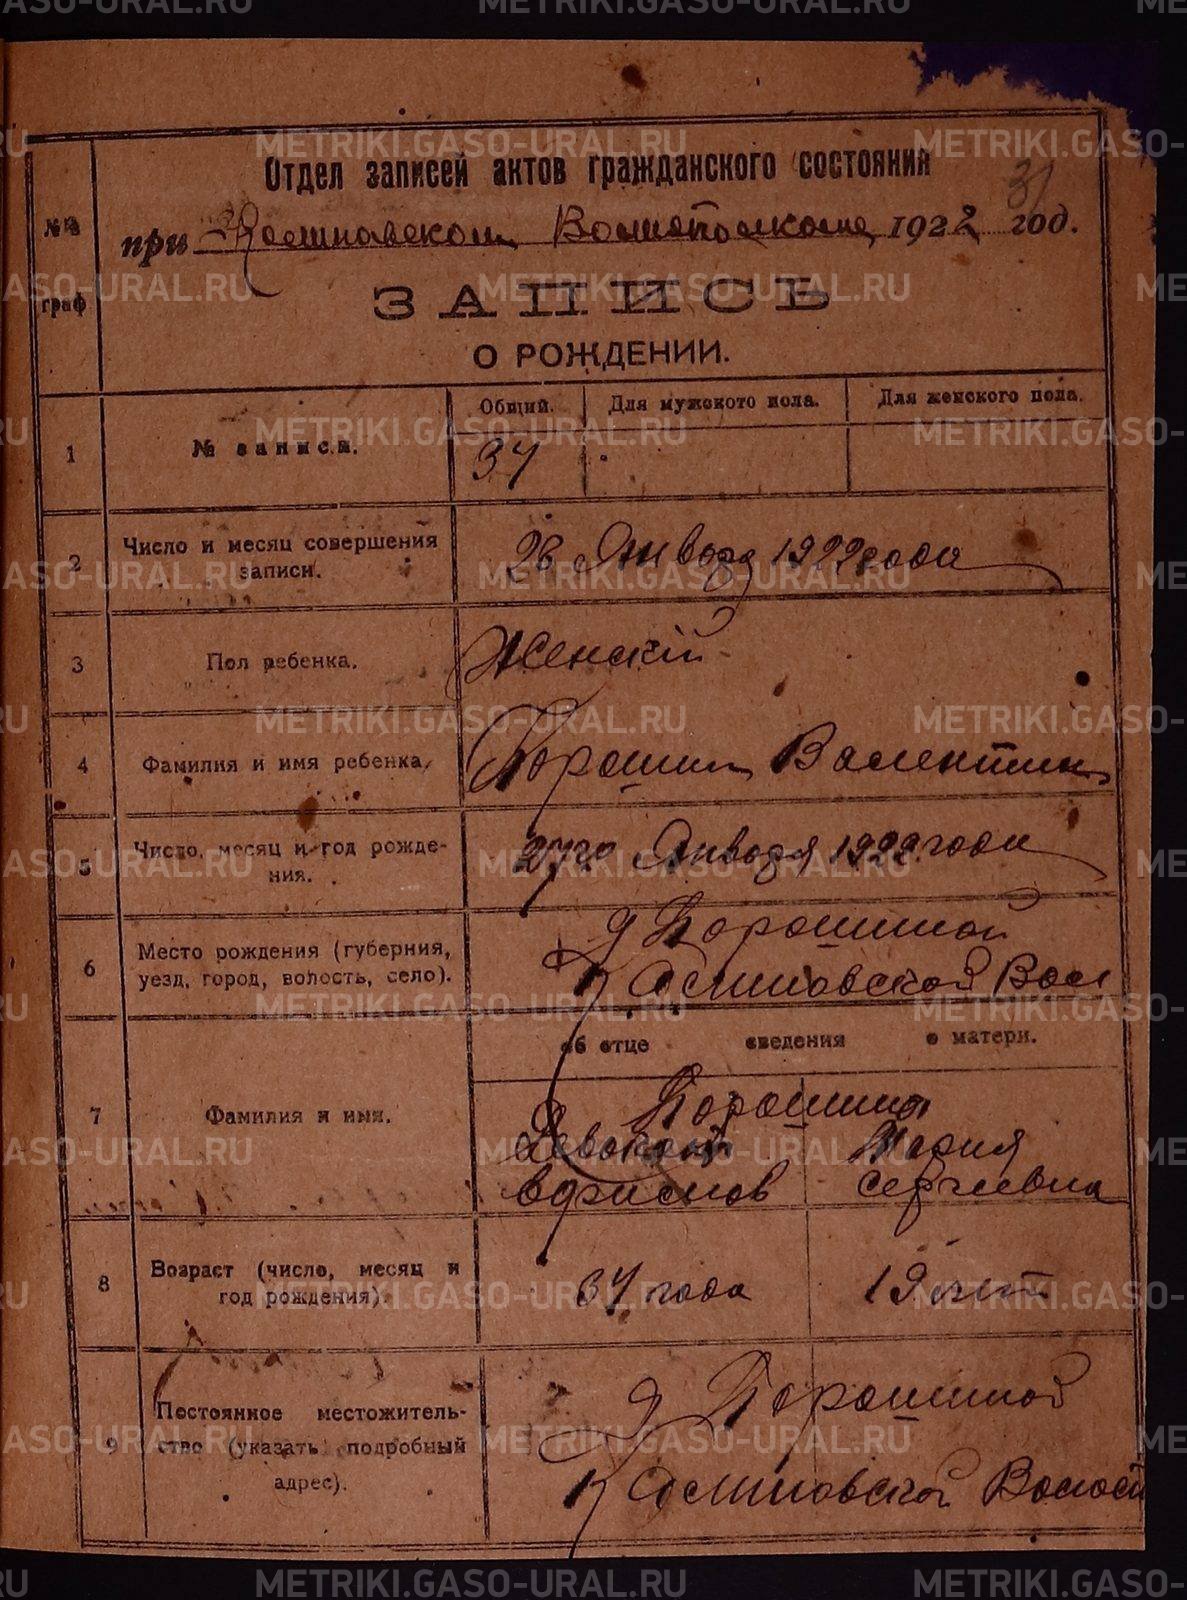 Отдел записей актов гражданского состояния
31
№№ граф
при Костновском Волисполкоме 1922 год.
ЗАПИСЬ
О РОЖДЕНИИ.
Общий. Для мужского пола. Для женского пола.
1 № записи. 37
2 Число и месяц совершения записи. 28 Января 1922 года
3 Пол ребенка. Женский
4 Фамилия и имя ребенка. Порошин Валентин
5 Число, месяц и год рожде-
ния. 27го Января 1922 года
6 Место рождения (губерния, д Порошиной
уезд, город, волость, село). Вол
об отце сведения о матери.
7 Фамилия и имя. Порошины
Мария
Сергиевна
8 Возраст (число, месяц и
год рождения). 37 года 19 лет
9 Постоянное местожитель-
ство (указать подробный
адрес). д Порошиной
Волост
METRIKI.GASO-URAL.RU